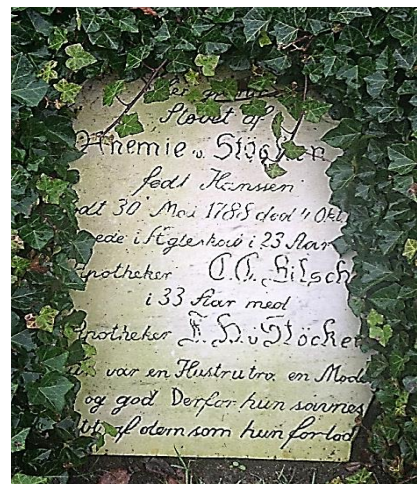 Støvet af
Anemie v. Støcken
født Hanssen
30 Mai 1788 død 4 Okt
i Ægteskab i 23 Aar
Apotheker C. C. Hilsch
i 33 Aar med
Apotheker F. H. v Støcken
var en Hustru tro en Mode
og god Derfor hun savnes
af dem som hun forlod